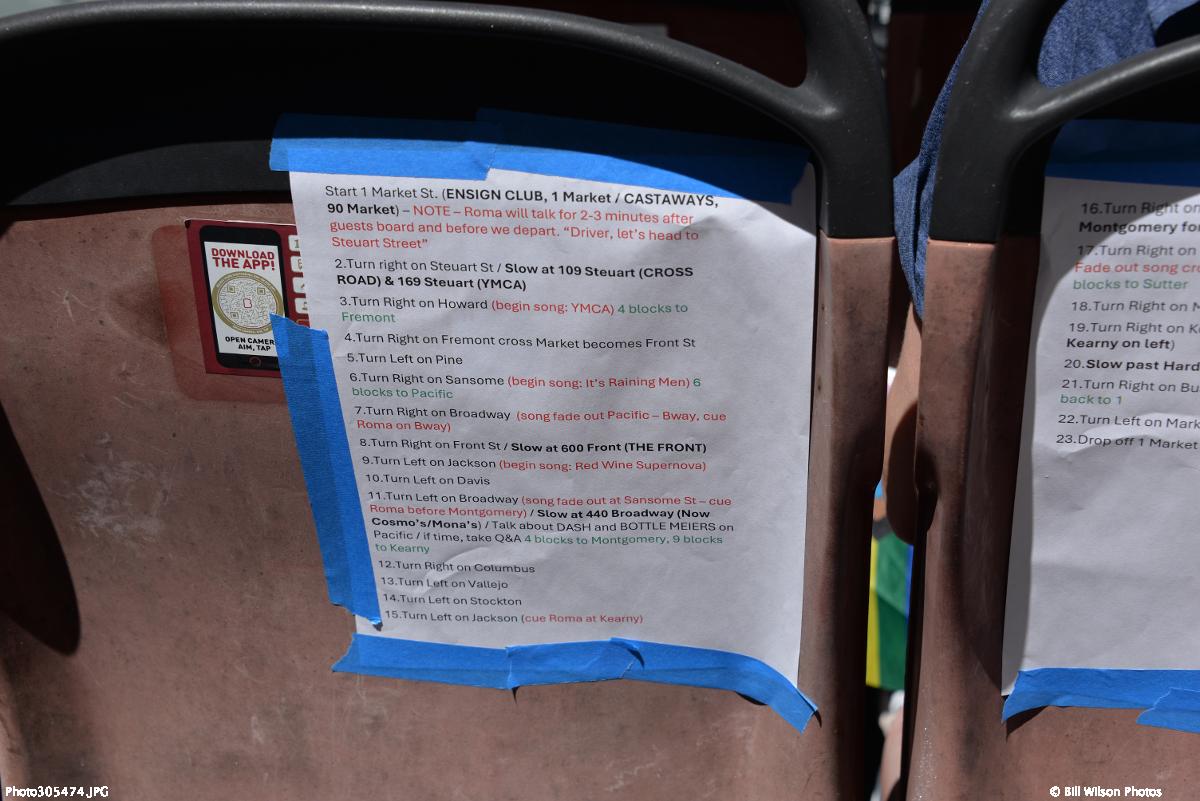 DOWNLOAD
THE APP!
OPEN CAMER
AIM, TAP
Start 1 Market St. (ENSIGN CLUB, 1 Market / CASTAWAYS,
90 Market) – NOTE – Roma will talk for 2-3 minutes after
guests board and before we depart. “Driver, let’s head to
Steuart Street”
2.Turn right on Steuart St / Slow at 109 Steuart (CROSS
ROAD) & 169 Steuart (YMCA)
3.Turn Right on Howard (begin song: YMCA) 4 blocks to
Fremont
4.Turn Right on Fremont cross Market becomes Front St
5.Turn Left on Pine
6.Turn Right on Sansome (begin song: It’s Raining Men) 6
blocks to Pacific
7.Turn Right on Broadway (song fade out Pacific – Bway, cue
Roma on Bway)
8.Turn Right on Front St / Slow at 600 Front (THE FRONT)
9.Turn Left on Jackson (begin song: Red Wine Supernova)
10.Turn Left on Davis
11.Turn Left on Broadway (song fade out at Sansome St – cue
Roma before Montgomery) / Slow at 440 Broadway (Now
Cosmo’s/Mona’s) / Talk about DASH and BOTTLE MEIERS on
Pacific / if time, take Q&A 4 blocks to Montgomery, 9 blocks
to Kearny
12.Turn Right on Columbus
13.Turn Left on Vallejo
14.Turn Left on Stockton
15.Turn Left on Jackson (cue Roma at Kearny)
16.Turn Right on
Montgomery fo
17.Turn Right on
Fade out song cr
blocks to Sutter
18.Turn Right on
19.Turn Right on K
Kearny on left)
20.Slow past Hard
21.Turn Right on Bu
back to 1
22.Turn Left on Mark
23.Drop off 1 Market
Photo305474.JPG
© Bill Wilson Photos